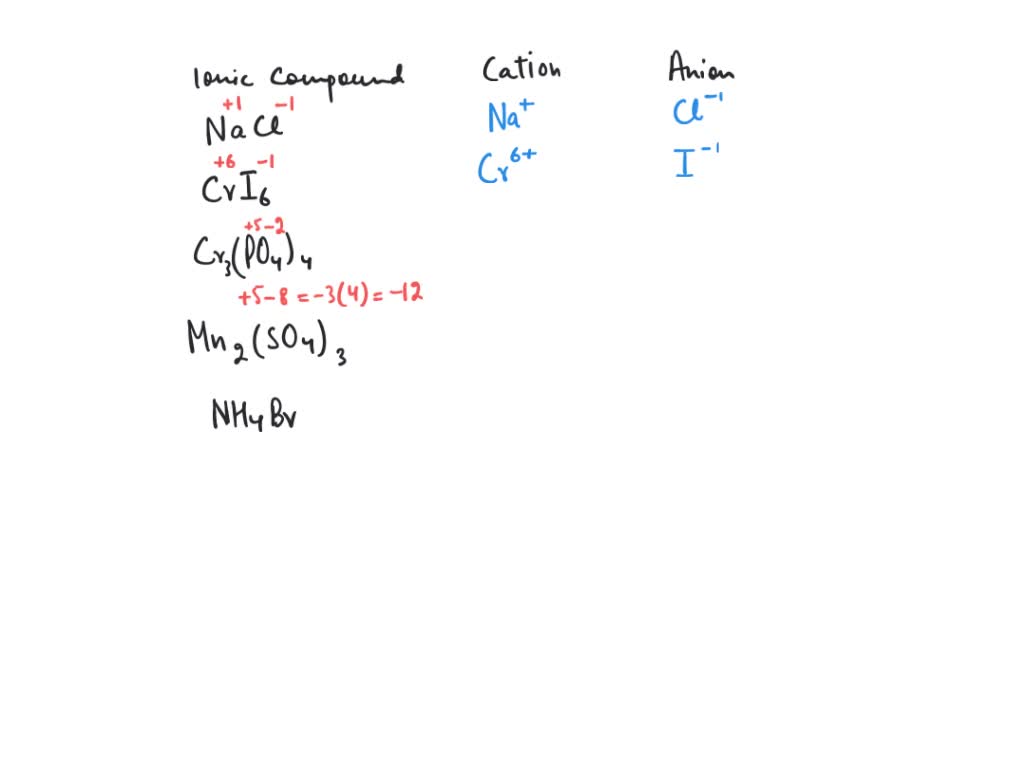 Ionic Compound Cation Anion
+1 -1
NaCl Na⁺ Cl⁻¹
+6 -1
CrI₆ Cr⁶⁺ I⁻¹
+5-2
Cr₃(PO₄)₄
+5-8 = -3(4) = -12
Mn₂(SO₄)₃
NH₄Br